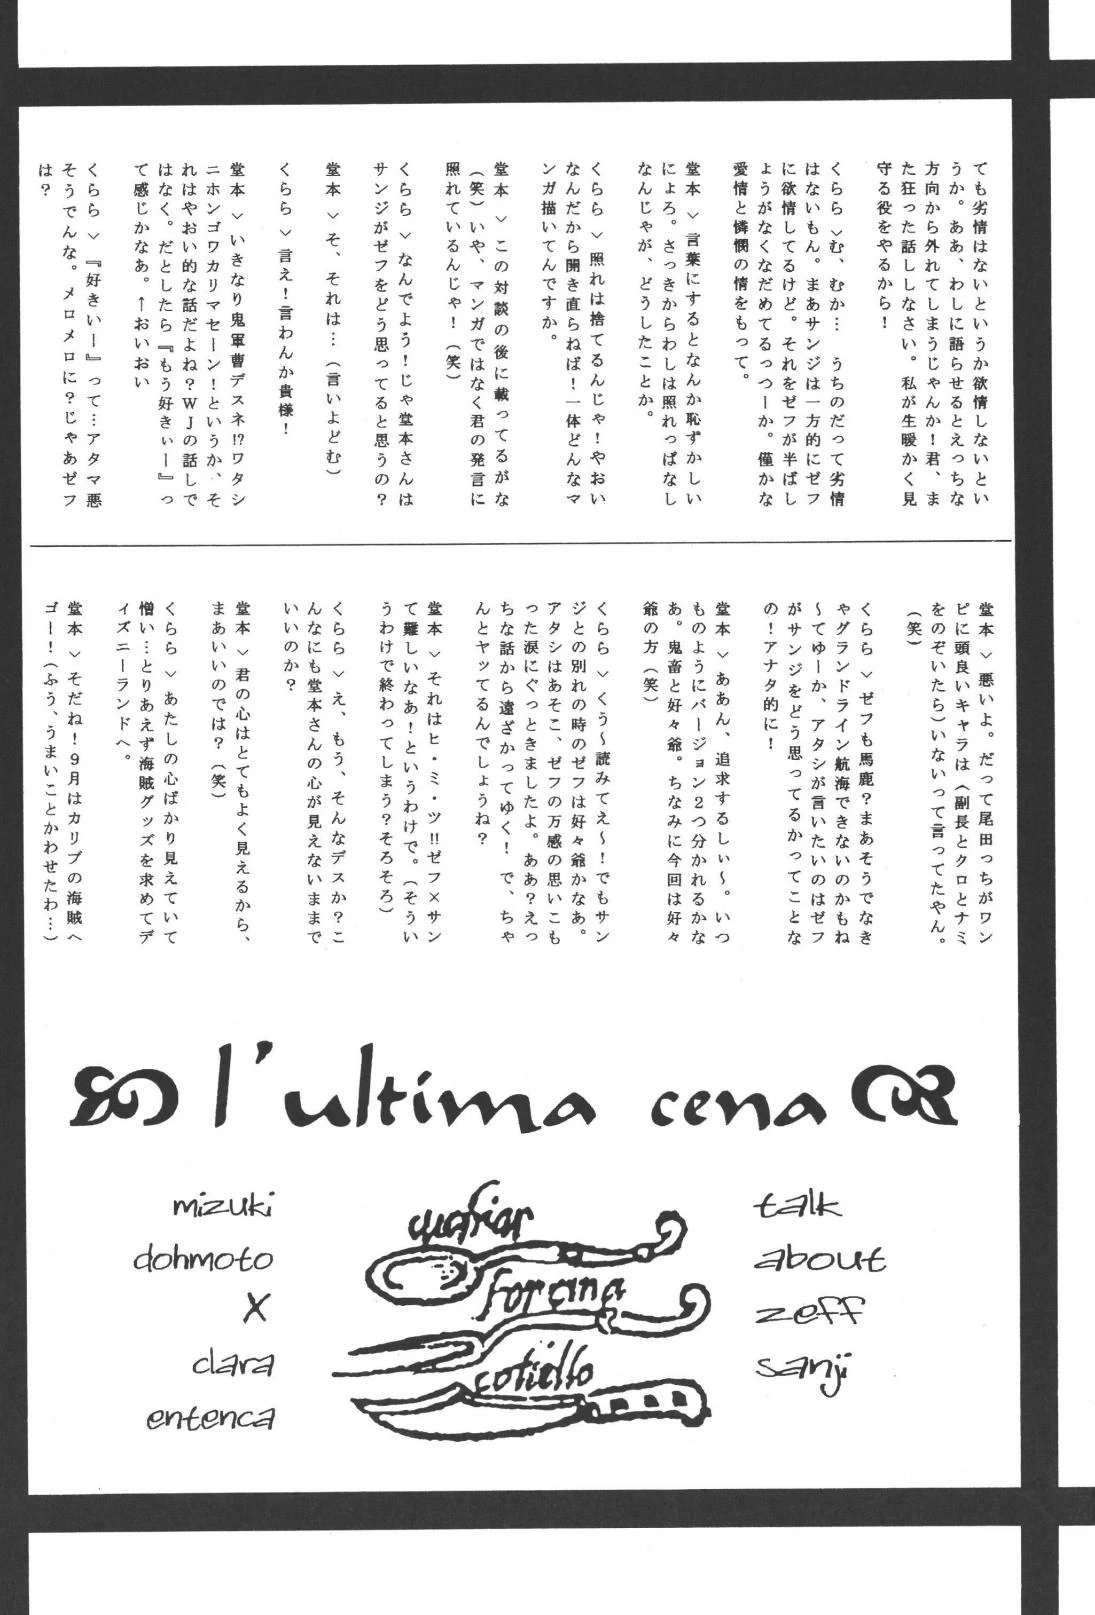 ても劣情はないというか欲情しないとい
うか。ああ、わしに語らせるとえっちな
方向から外れてしまうじゃんか！君、ま
た狂った話ししなさい。私が生暖かく見
守る役をやるから！
くらら＞む、むか… うちのだって劣情
はないもん。まあサンジは一方的にゼフ
に欲情してるけど。それをゼフが半ばし
ょうがなくなだめてるっつーか。僅かな
愛情と憐憫の情をもって。
堂本＞言葉にするとなんか恥ずかしい
にょろ。さっきからわしは照れっぱなし
なんじゃが、どうしたことか。
くらら＞照れは捨てるんじゃ！やおい
なんだから開き直らねば！一体どんなマ
ンガ描いてんですか。
堂本 ＞この対談の後に載ってるがな
（笑）いや、マンガではなく君の発言に
照れているんじゃ！（笑）
くらら＞なんでよう！じゃ堂本さんは
サンジがゼフをどう思ってると思うの？
堂本＞そ、それは…（言いよどむ）
くらら＞言え！言わんか貴様！
堂本＞いきなり鬼軍曹デスネ!?ワタシ
ニホンゴワカリマセーン！というか、そ
れはやおい的な話だよね？WJの話しで
はなく。だとしたら『もう好きぃー』っ
て感じかなあ。←おいおい
くらら＞『好きいー』って…アタマ悪
そうでんな。メロメロに？じゃあゼフ
は？
堂本＞悪いよ。だって尾田っちがワン
ピに頭良いキャラは（副長とクロとナミ
をのぞいたら）いないって言ってたやん。
（笑）
くらら＞ゼフも馬鹿？まあそうでなき
ゃグランドライン航海できないのかもね
〜てゆーか、アタシが言いたいのはゼフ
がサンジをどう思ってるかってことな
の！アナタ的に！
堂本＞ああん、追求するしぃ〜。いつ
ものようにバージョン2つ分かれるかな
あ。鬼畜と好々爺。ちなみに今回は好々
爺の方（笑）
くらら＞くう〜読みてえ〜！でもサン
ジとの別れの時のゼフは好々爺かなあ。
アタシはあそこ、ゼフの万感の思いこも
った涙にぐっときましたよ。ああ？えっ
ちな話から遠ざかってゆく！ で、ちゃ
んとヤッてるんでしょうね？
堂本＞それはヒ・ミ・ツ!!ゼフ×サン
て難しいなあ！というわけで。（そうい
うわけで終わってしまう？そろそろ）
くらら＞え、もう、そんなデスか？こ
んなにも堂本さんの心が見えないままで
いいのか？
堂本＞君の心はとてもよく見えるから、
まあいいのでは？（笑）
くらら＞あたしの心ばかり見えていて
憎い…とりあえず海賊グッズを求めてデ
ィズニーランドへ。
堂本＞そだね！9月はカリブの海賊へ
ゴー！（ふう、うまいことかわせたわ…）
l'ultima cena
mizuki
dohmoto
X
clara
entenca
forcina
coltello
talk
about
zeff
sanji